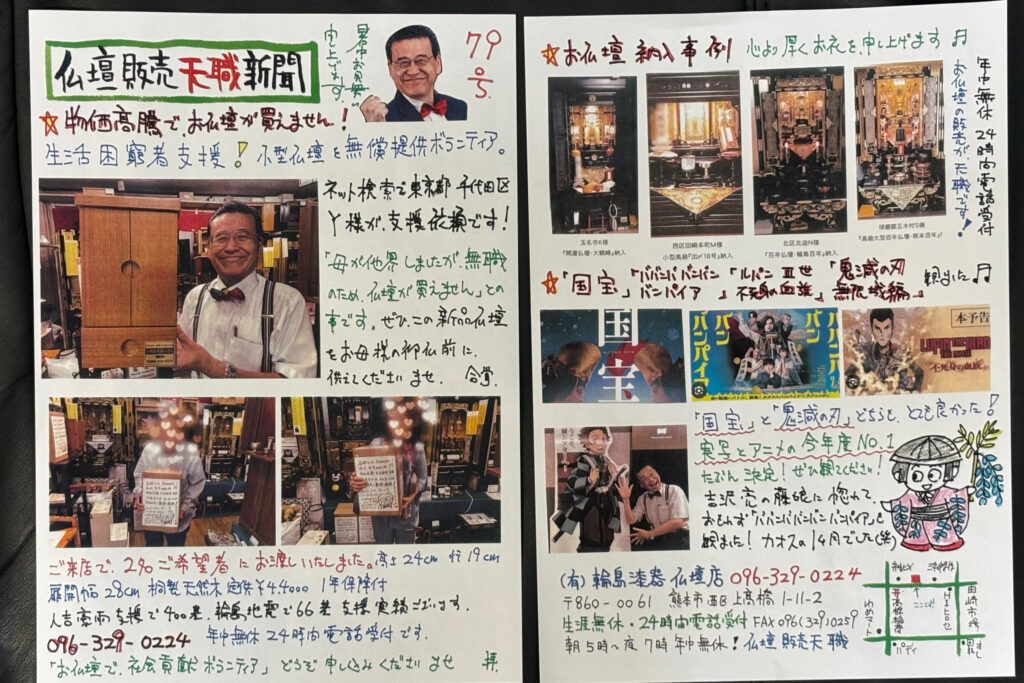 仏壇販売天職新聞
暑中お見舞い
申し上げます。
79
号
物価高騰でお仏壇が買えません!
生活困窮者支援!小型仏壇を無償提供ボランティア。
ネット検索で東京都千代田区
Y様が支援依頼です!
「母が他界しましたが、無職
のため、仏壇が買えません」との
事です。ぜひ、この新品仏壇
をお母様の御仏前に、
供えてくださいませ。合掌
ご来店で、2名ご希望者にお渡しいたしました。高さ24cm行19cm
扉開幅28cm桐製天然木定価¥44000 1年保障付
人吉豪雨支援で400基、輪島地震で66基支援実績ございます。
096-329-0224 年中無休24時間電話受付です。
「お仏壇で、社会貢献ボランティア」どうぞ申し込みくださいませ 拝.
お仏壇納入事例 心より厚くお礼を申し上げます♬
年中無休24時間電話受付
お仏壇の販売が天職です!
玉名市K様
『開運仏壇・大鶴崎』納入
西区田崎本町M様
小型高級『出〆18号』納入
北区北迫N様
『百年仏壇・輪島百年』納入
球磨郡五木村S様
『高級大型百年仏壇・熊本百年』
「国宝」「ババンババンバンバンパイア」「ルパン三世不死身の血族」「鬼滅の刃無限城編」観ました♬
国宝
ババンババンバンバンパイア
本予告
LUPIN THE IIIRD
THE MOVIE
"不死身の血族"
「国宝」と「鬼滅の刃」どちらも、とても良かった!
実写とアニメの今年度No.1
たぶん決定!ぜひ観てください!
吉沢亮の藤娘に惚れて、
おもわず「ババンババンバンバンパイア」も
観ました!カオスの1ヶ月でした(笑)
(有)輪島漆器仏壇店 096-329-0224
〒860-0061 熊本市西区上高橋1-11-2
生涯無休・24時間電話受付 FAX096(329)0259
朝5時~夜7時年中無休!仏壇販売天職
ココ
田崎市場
ゆめマート